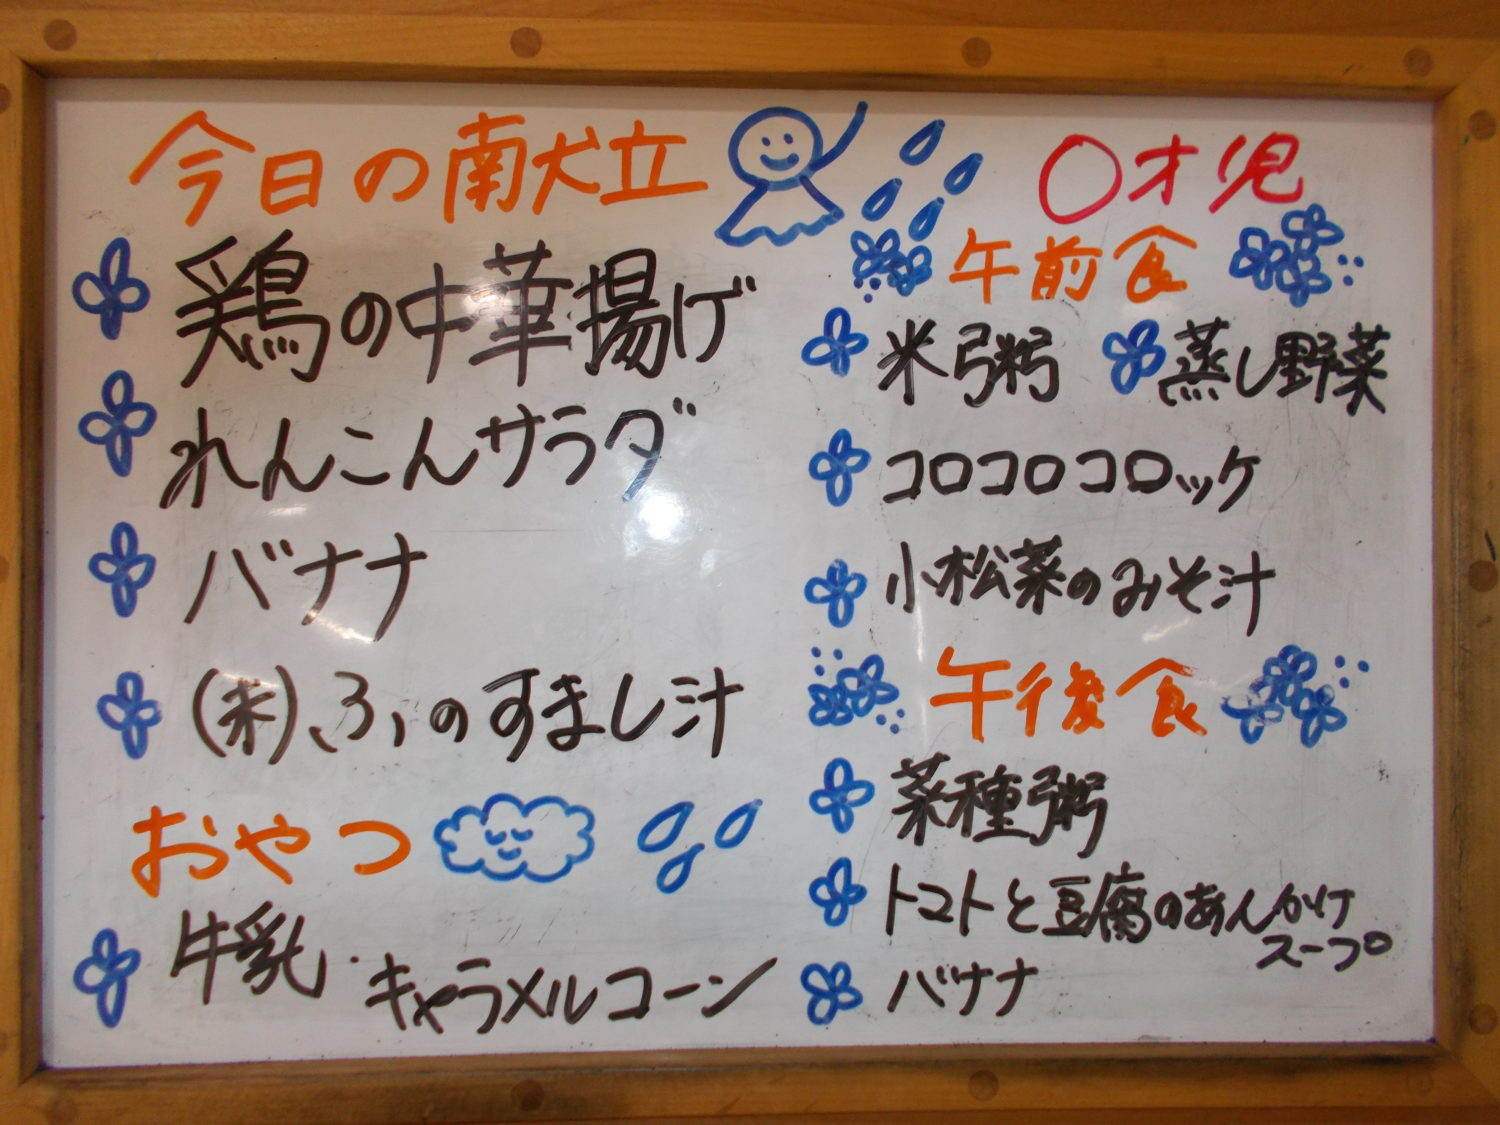 今日の献立
鶏の中華揚げ
れんこんサラダ
バナナ
(米)、ふのすまし汁
おやつ
牛乳・キャラメルコーン
〇才児
午前食
米粥 蒸し野菜
コロコロコロッケ
小松菜のみそ汁
午後食
菜種粥
トマトと豆腐のあんかけ
スープ
バナナ